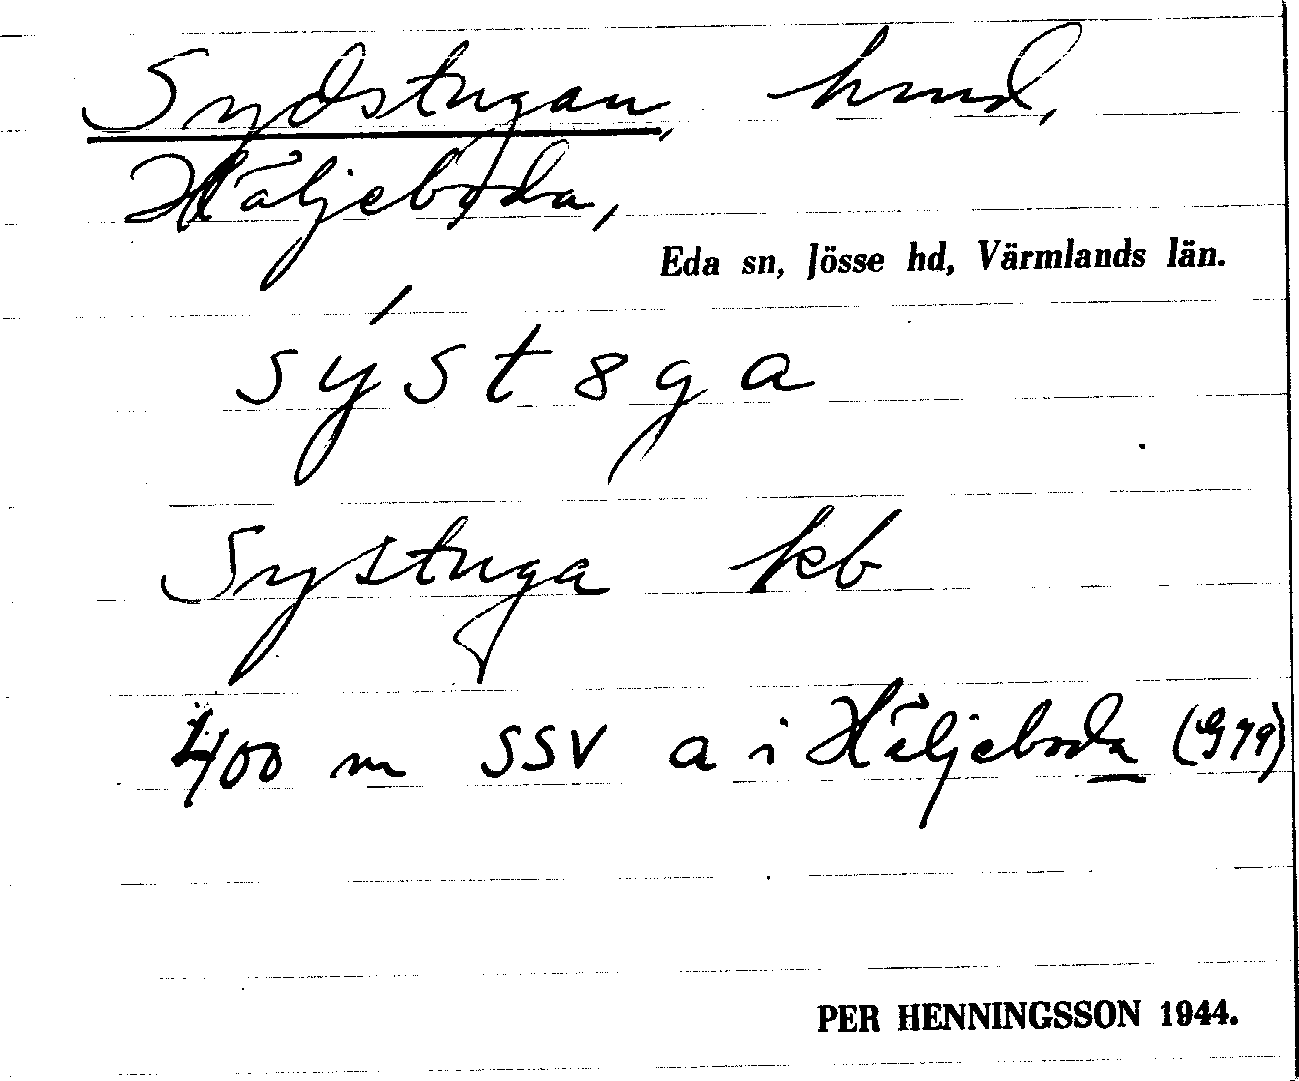 Sydstugan, hmd,
Häljeboda,
Eda sn, Jösse hd, Värmlands län.
sýst8ga
Systuga kb
400 m SSV a i Häljeboda (G79)
PER HENNINGSSON 1944.